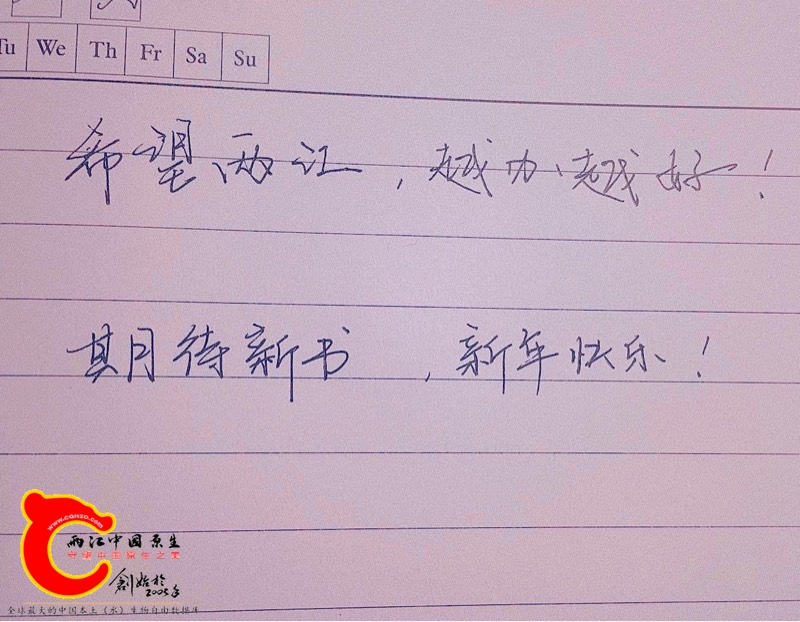 Tu We Th Fr Sa Su
希望两江，越办越好！
期待新书，新年快乐！
www.cqnso.com
两江中国原生
守望中国原生之美
創始於
2005年
全球最大的中国本土（水）生物自由数据库